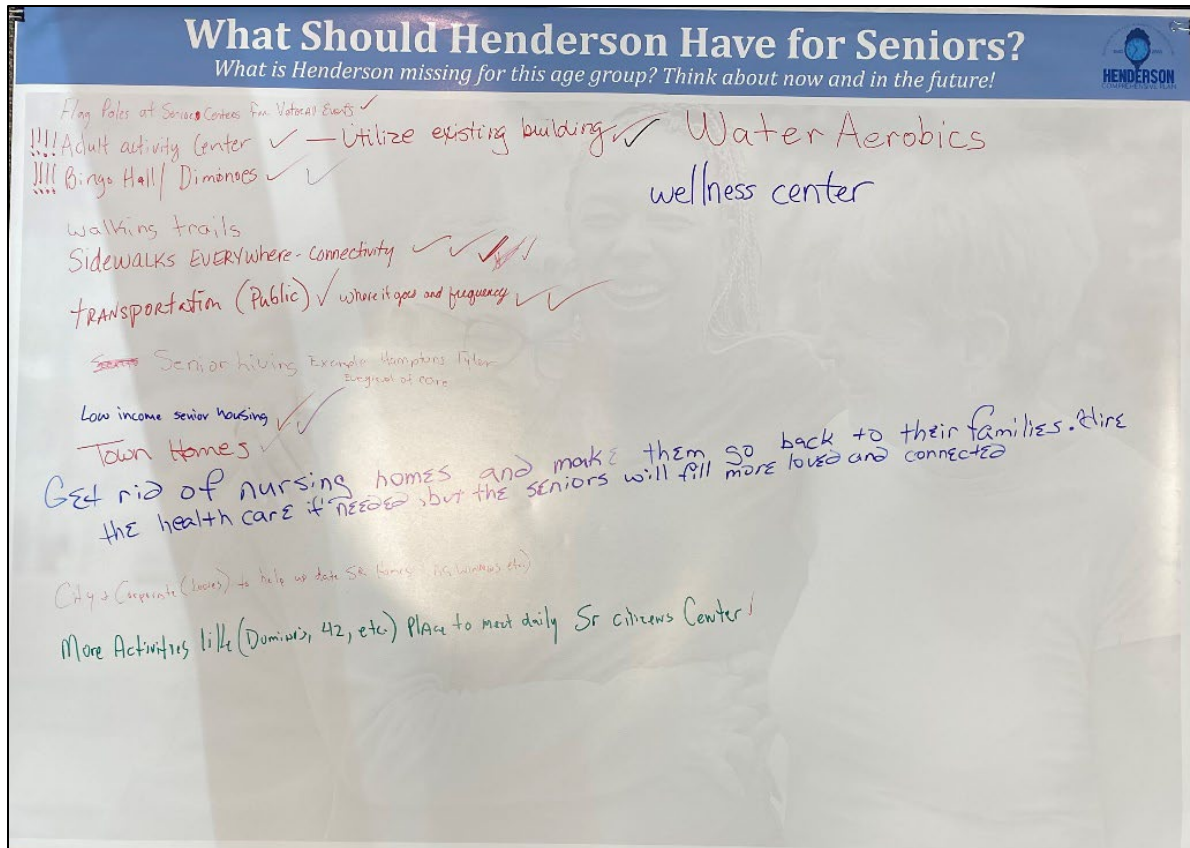 What Should Henderson Have for Seniors?
What is Henderson missing for this age group? Think about now and in the future!
HENDERSON
COMPREHENSIVE PLAN
Flag Poles at Centers for Events
!!!! Adult activity Center — Utilize existing building
Water Aerobics
!!!! Bingo Hall / Diminoes
wellness center
walking trails
Sidewalks EVERYwhere - Connectivity
TRANSPORTATION (Public) where it goes and frequency
Senior living Example Hamptons Tyler
of care
Low income senior housing
Town Homes
Get rid of nursing homes and make them go back to their families. Hire
the health care if needed, but the seniors will fill more loved and connected
City & Corporate (Lowes) to help up date SR Homes
More Activities like (Dominos, 42, etc.) Place to meet daily Sr citizens Center